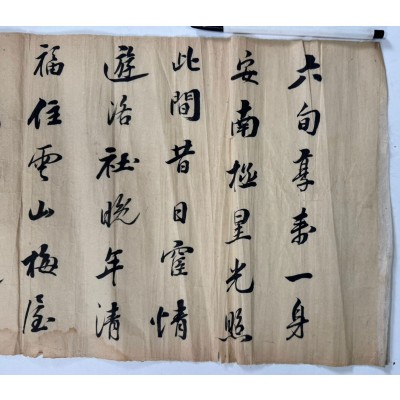 六旬享壽一身
安南極星光照
此間昔日宦情
遊洛社晚年清
福住雲山梅屋